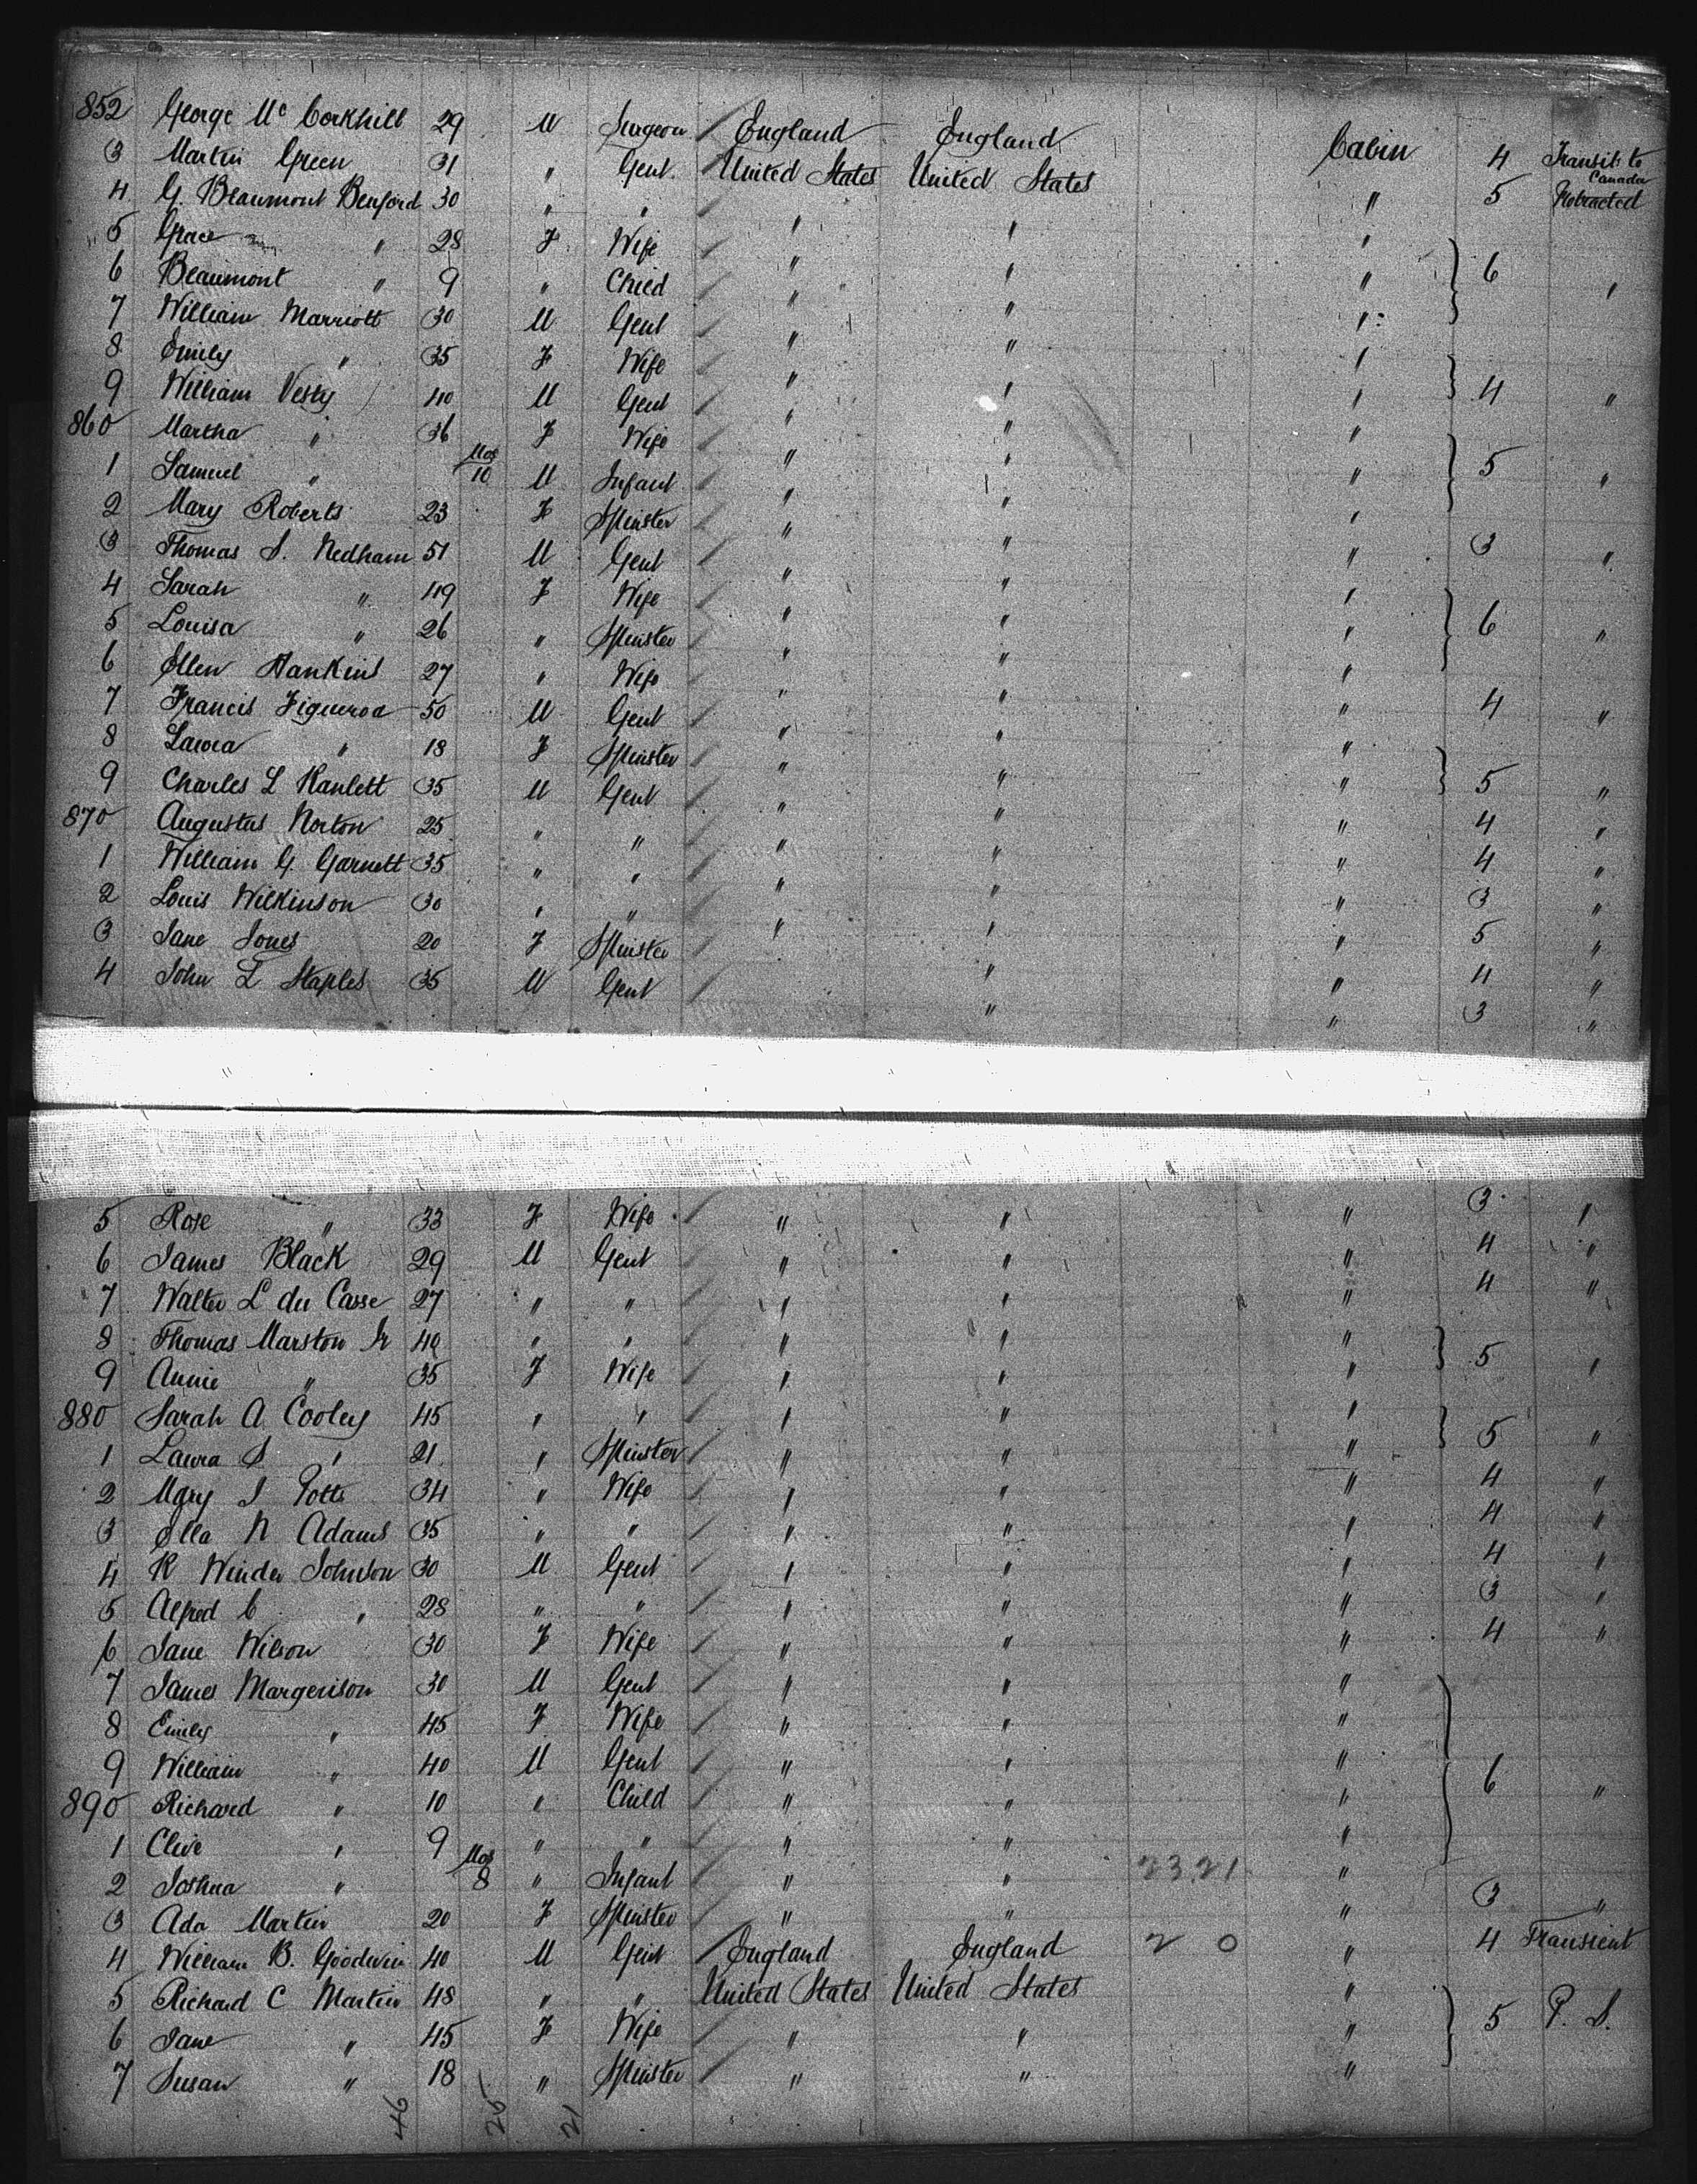 852 George Mc Corkhill 29 M Surgeon England England Cabin 4 Transit to Canada
3 Martin Green 31 " Gent United States United States " 5 Protracted
4 G. Beaumont Benford 30 " " " " "
5 Grace " 28 F Wife " " " 6 "
6 Beaumont " 9 " Child " " "
7 William Marriott 30 M Gent " " "
8 Emily " 35 F Wife " " " 4 "
9 William Vesty 40 M Gent " " "
860 Martha " 36 F Wife " " " 5 "
1 Samuel " Mos 10 M Infant " " "
2 Mary Roberts 23 F Spinster " " " 3 "
3 Thomas S. Nedham 51 M Gent " " "
4 Sarah " 49 F Wife " " " 6 "
5 Louisa " 26 " Spinster " " "
6 Ellen Hankins 27 " Wife " " " 4 "
7 Francis Figueroa 50 M Gent " " "
8 Laura " 18 F Spinster " " " 5 "
9 Charles L Ranlett 35 M Gent " " " 4 "
870 Augustus Norton 25 " " " " " 4 "
1 William G. Garnett 35 " " " " " 3 "
2 Louis Wilkinson 30 " " " " " 5 "
3 Jane Jones 20 F Spinster " " 4 "
4 John L Staples 35 M Gent " " 3 "
5 Rose " 33 F Wife " " " 3 "
6 James Black 29 M Gent " " " 4 "
7 Walter L du Casse 27 " " " " " 4 "
8 Thomas Marston Jr 40 " " " " "
9 Annie " 35 F Wife " " " 5 "
880 Sarah A Cooley 45 " " " " "
1 Laura S " 21 " Spinster " " " 5 "
2 Mary J Potts 34 " Wife " " " 4 "
3 Ella N Adams 35 " " " " " 4 "
4 R Winder Johnson 30 M Gent " " " 4 "
5 Alfred C " 28 " " " " " 3 "
6 Jane Wilson 30 F Wife " " " 4 "
7 James Margerison 30 M Gent " " "
8 Emily " 45 F Wife " " "
9 William " 40 M Gent " " "
890 Richard " 10 " Child " " " 6 "
1 Clive " 9 " " " " "
2 Joshua " Mos 8 " Infant " " 23 21 "
3 Ada Martin 20 F Spinster " " " 3 "
4 William B. Goodwin 40 M Gent England England 2 0 " 4 Transient
5 Richard C Martin 48 " " United States United States "
6 Jane " 45 F Wife " " " 5 P. S.
7 Susan " 18 " Spinster " " "
46 25 21